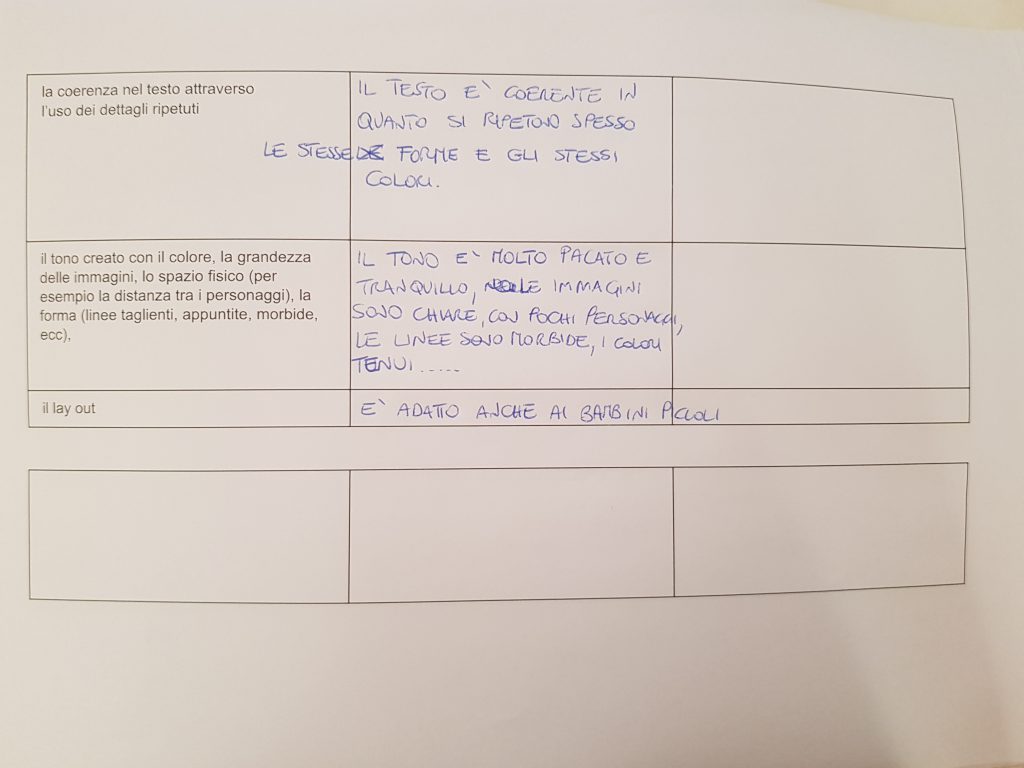 la coerenza nel testo attraverso
l'uso dei dettagli ripetuti
IL TESTO E' COERENTE IN
QUANTO SI RIPETONO SPESSO
LE STESSE FORME E GLI STESSI
COLORI.
il tono creato con il colore, la grandezza
delle immagini, lo spazio fisico (per
esempio la distanza tra i personaggi), la
forma (linee taglienti, appuntite, morbide,
ecc),
IL TONO E' MOLTO PACATO E
TRANQUILLO, LE IMMAGINI
SONO CHIARE, CON POCHI PERSONAGGI,
LE LINEE SONO MORBIDE, I COLORI
TENUI......
il lay out
E' ADATTO ANCHE AI BAMBINI PICCOLI